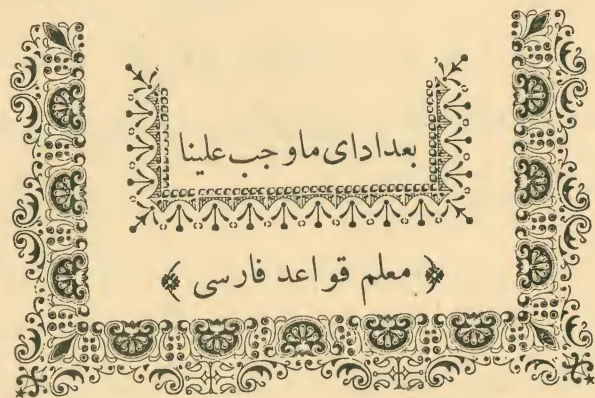 بعد ادای ما وجب علینا
﴿ معلم قواعد فارسی ﴾